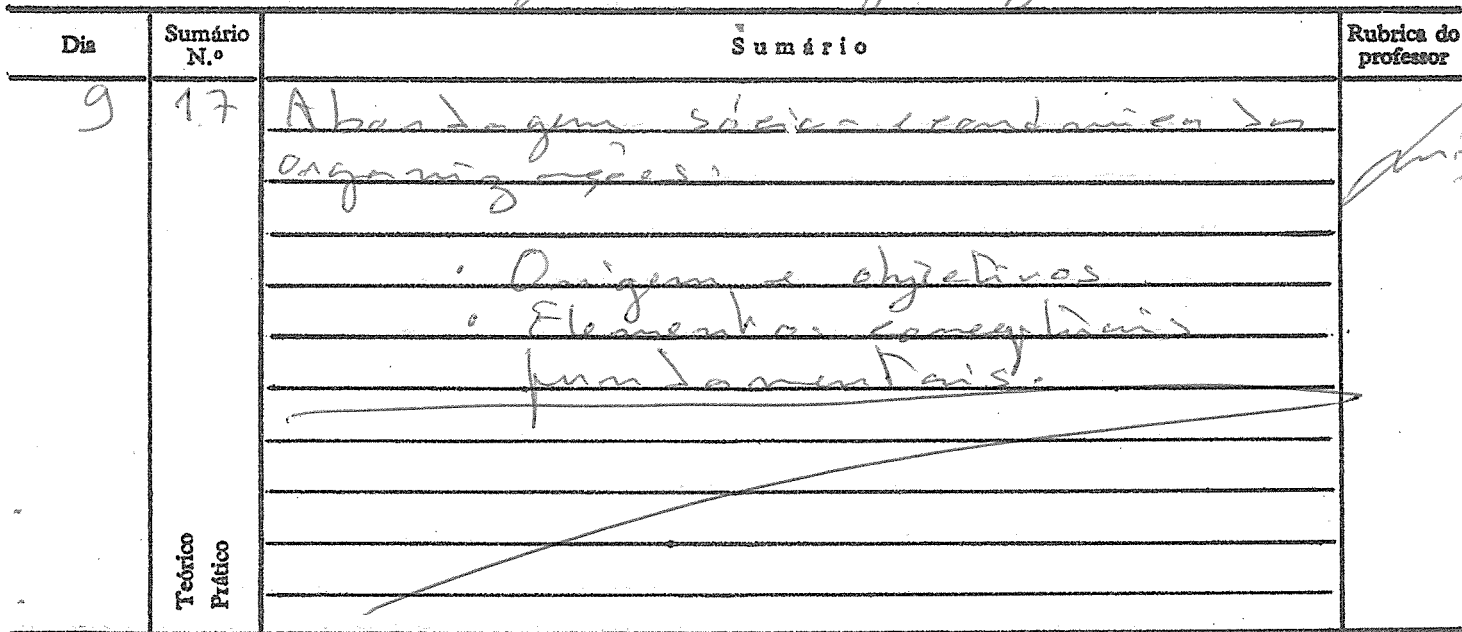 Dia Sumário N.º Sumário Rubrica do professor
9 17 Abordagem sócio-económica das
organizações:
· Origem e objetivos
· Elementos conceptuais
fundamentais.
Teórico
Prático